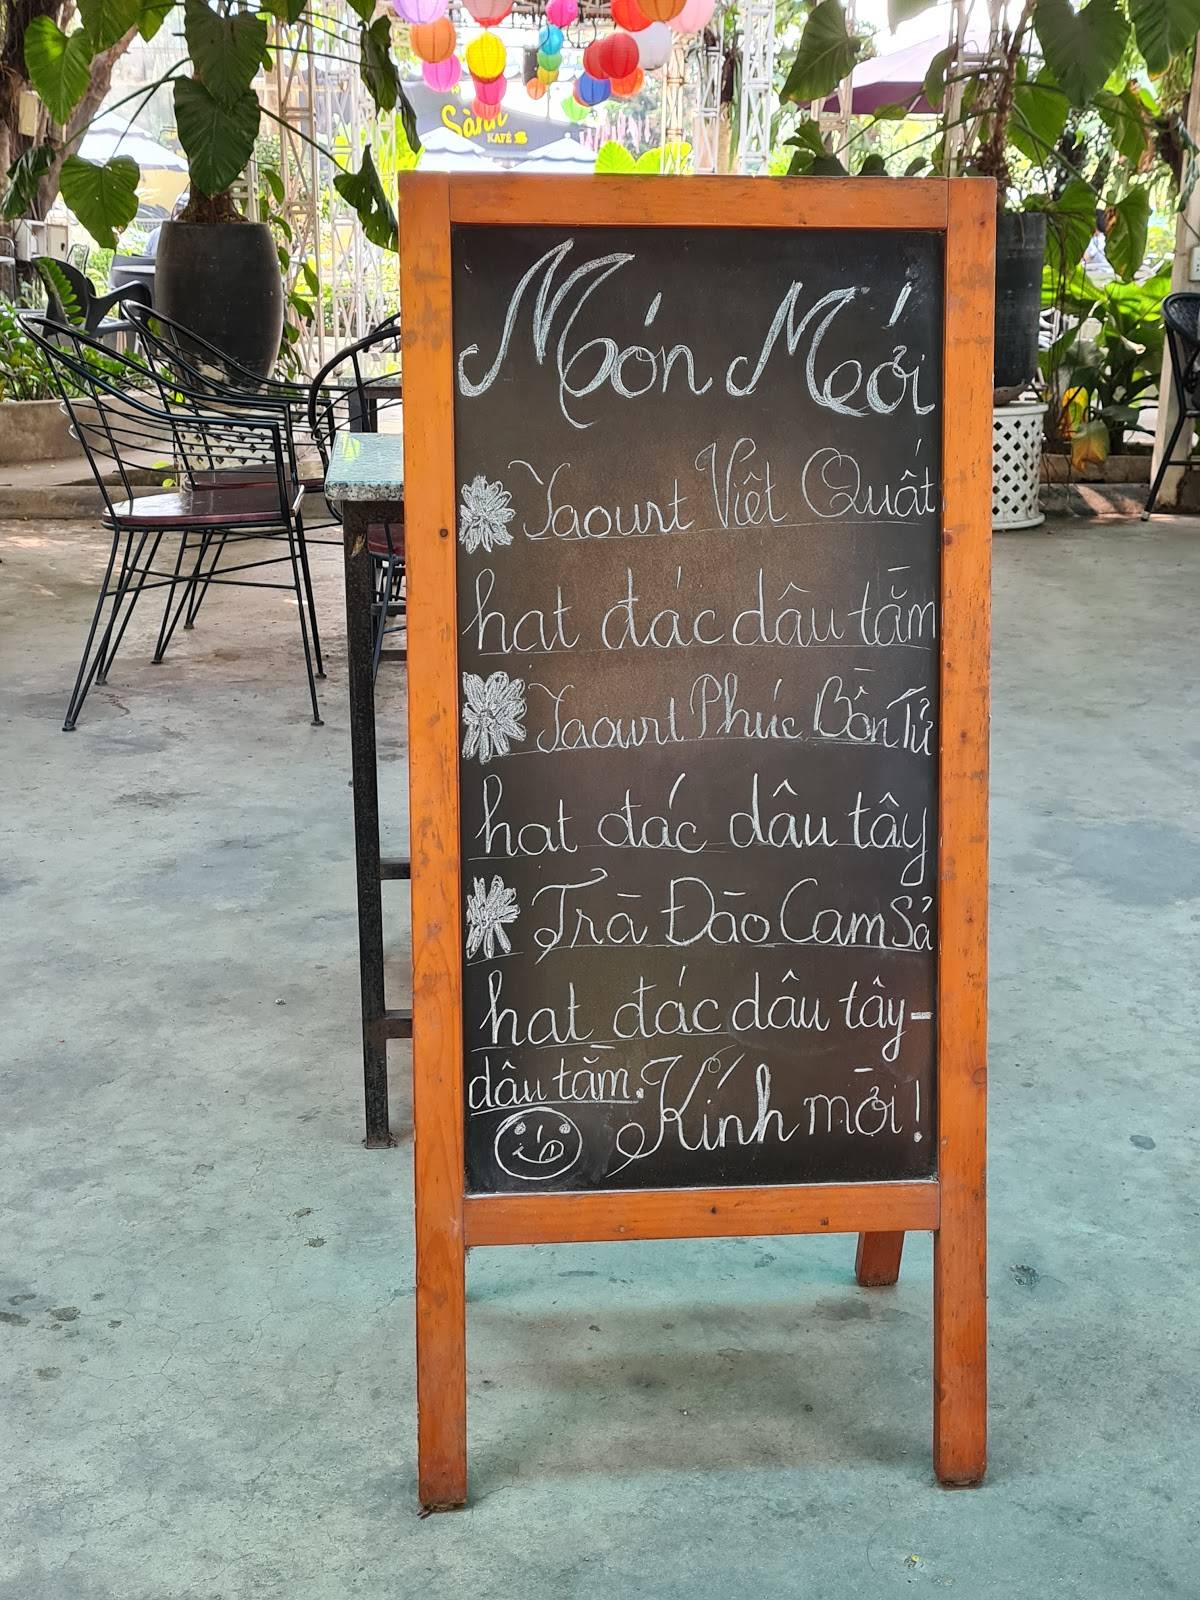 Sành
KAFÉ
Món Mới
Yaourt Việt Quất
hạt đác dâu tằm
Yaourt Phúc Bồn Tử
hạt đác dâu tây
Trà Đào Cam Sả
hạt đác dâu tây-
dâu tằm. Kính mời!